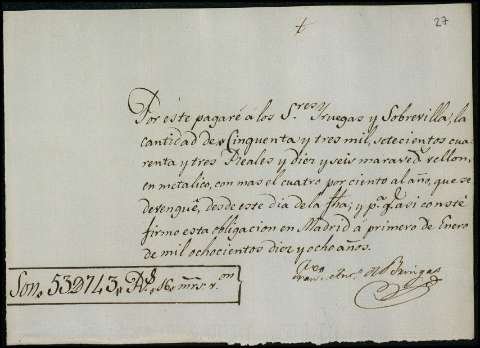 27
Por éste pagaré á los S.res Yruegas y Sobrevilla, la
cantidad de Cinquenta y tres mil, setecientos cua
renta y tres Reales y diez y seis maraved.s vellon,
en metalico, con mas el cuatro por ciento al año, que se
devengue, desde este dia de la fha; y p.a q.e asi conste
firmo esta obligacion en Madrid á primero de Enero
de mil ochocientos diez y ocho años.
Son 53D743 R.s 16 mrs. v.on
Fran.co Ant.o de Bringas